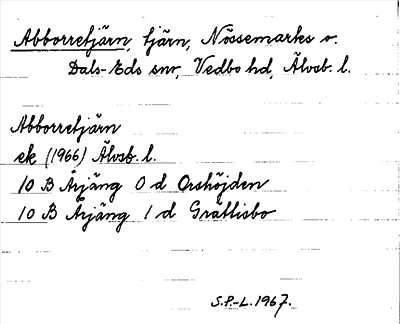 Abborretjärn, tjärn, Nössemarks o.
Dals-Eds snr, Vedbo hd, Älvsb. l.
Abborretjärn
ek (1966) Älvsb. l.
10 B Årjäng 0 d Orshöjden
10 B Årjäng 1 d Gråttisbo
S.P.-L. 1967.